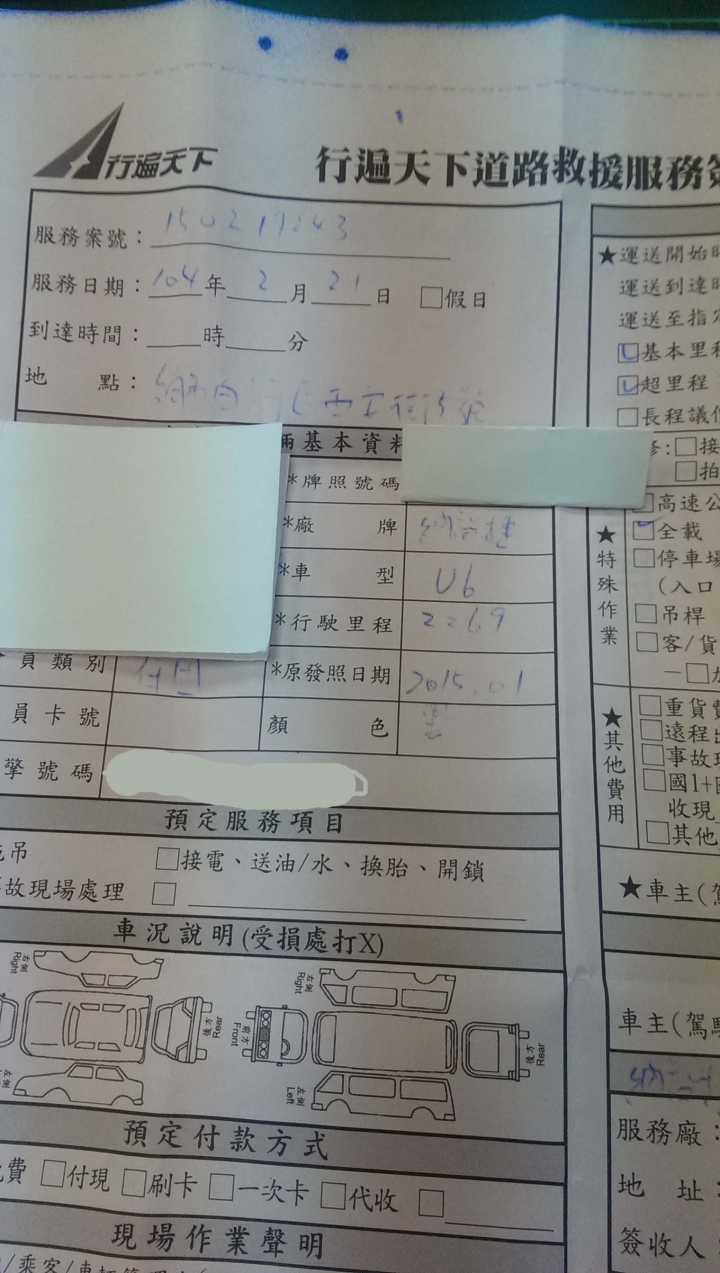 行遍天下
行遍天下道路救援服務
服務案號：150219243
服務日期：104年2月21日 □假日
到達時間：____時____分
地 點：
兩基本資料
*牌照號碼
*廠 牌 納智捷
*車 型 U6
*行駛里程 2269
員類別 *原發照日期 2015.01
員卡號 顏 色
擎號碼
預定服務項目
吊 □接電、送油/水、換胎、開鎖
故現場處理 □
車況說明(受損處打X)
右側 Right
後方 Rear
左側
右側 Right
前方 Front
後方 Rear
左側 Left
預定付款方式
費 □付現 □刷卡 □一次卡 □代收 □
現場作業聲明
/乘客/車輛
★運送開始時
運送到達時
運送至指定
基本里程
超里程
□長程議價
□接
□拍
高速公
全載
□停車場
(入口
□吊桿
□客/貨
★特殊作業
□重貨費
□遠程出
□事故現
□國1+國
收現
□其他
★其他費用
★車主(駕
車主(駕駛
服務廠：
地 址：
簽收人：